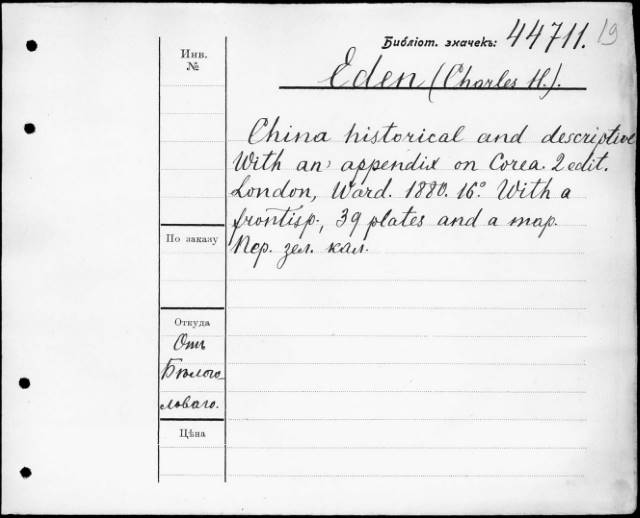 Библіот. значекъ: 44711. 19
Инв.
№
Eden (Charles H.).
China historical and descriptive
With an appendix on Corea. 2 edit.
London, Ward. 1880. 16° With a
frontisp., 39 plates and a map.
По заказу
Пер. зел. кал.
Откуда
Отъ
Бѣлого
ловаго.
Цѣна